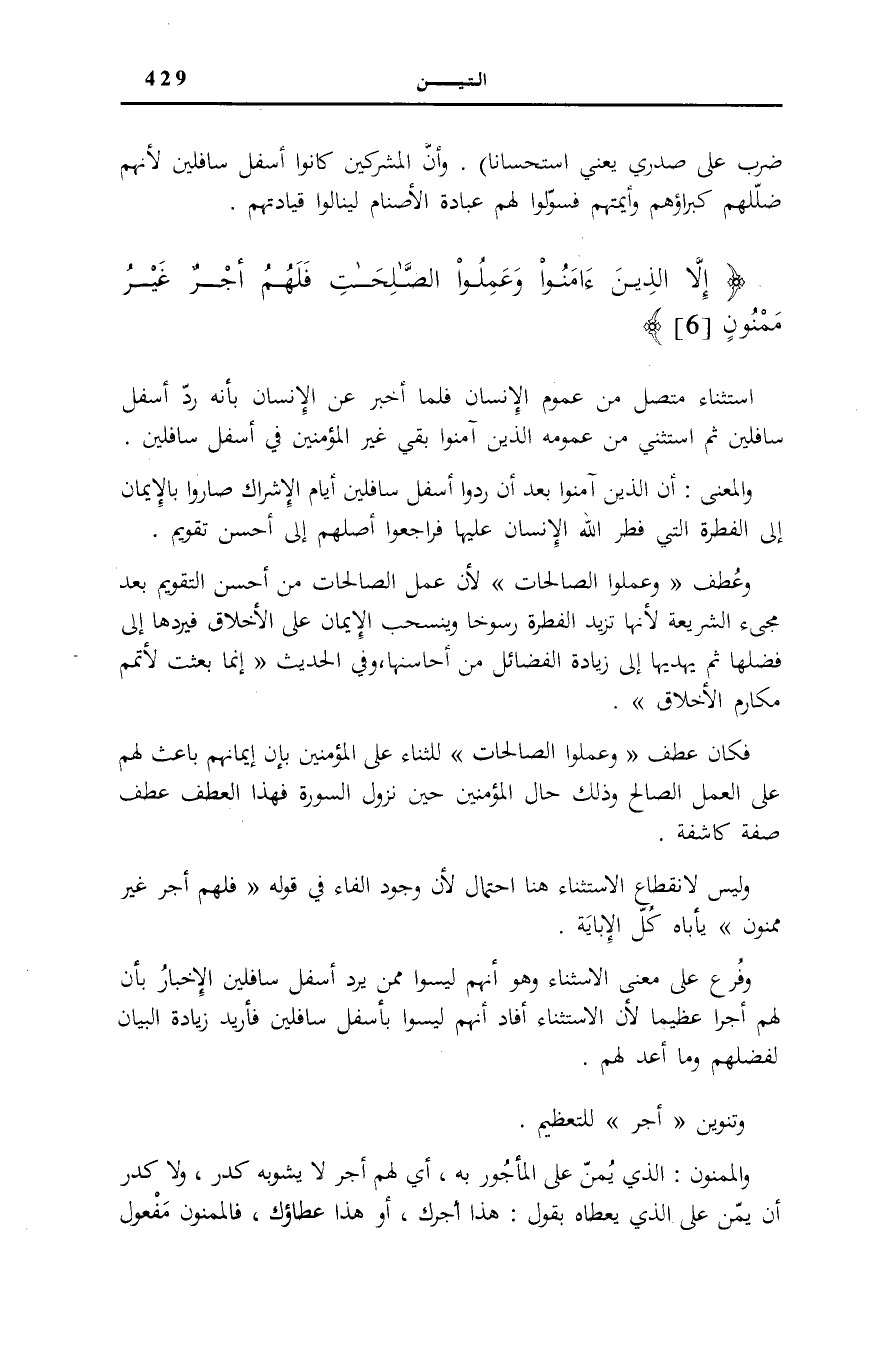 429 التيـــن
ضرب على صدري يعني استحسانا) . وأنّ المشركين كانوا أسفل سافلين لأنهم
ضلّلهم كبراؤهم وأيمتهم فسوّلوا لهم عبادة الأصنام لينالوا قيادتهم .
﴿ إِلَّا الذِيـنَ ءَامَنُـواْ وَعَمِلُـواْ الصَّـٰلِحَـٰـتِ فَلَهُـمُ أَجْـــرٌ غَيْـــرُ
مَمْنُونٍ [6] ﴾
استثناء متصل من عموم الإنسان فلما أخبر عن الإنسان بأنه ردّ أسفل
سافلين ثم استثني من عمومه الذين آمنوا بقي غير المؤمنين في أسفل سافلين .
والمعنى : أن الذين آمنوا بعد أن ردوا أسفل سافلين أيام الإشراك صاروا بالإيمان
إلى الفطرة التي فطر الله الإنسان عليها فراجعوا أصلهم إلى أحسن تقويم .
وعُطف « وعملوا الصالحات » لأن عمل الصالحات من أحسن التقويم بعد
مجيء الشريعة لأنها تزيد الفطرة رسوخا وينسحب الإيمان على الأخلاق فيردها إلى
فضلها ثم يهديها إلى زيادة الفضائل من أحاسنها،وفي الحديث « إنما بعثت لأتمم
مكارم الأخلاق » .
فكان عطف « وعملوا الصالحات » للثناء على المؤمنين بإن إيمانهم باعث لهم
على العمل الصالح وذلك حال المؤمنين حين نزول السورة فهذا العطف عطف
صفة كاشفة .
وليس لانقطاع الاستثناء هنا احتمال لأن وجود الفاء في قوله « فلهم أجر غير
ممنون » يأباه كُلَّ الإبايَة .
وفُرع على معنى الاسثناء وهو أنهم ليسوا ممن يرد أسفل سافلين الإخبارُ بأن
لهم أجرا عظيما لأن الاستثناء أفاد أنهم ليسوا بأسفل سافلين فأريد زيادة البيان
لفضلهم وما أعد لهم .
وتنوين « أجر » للتعظيم .
والممنون : الذي يُمنّ على المأجُور به ، أي لهم أجر لا يشوبه كدر ، ولا كدر
أن يمّن على الذي يعطاه بقول : هذا أجرك ، أو هذا عطاؤك ، فالممنون مَفْعول